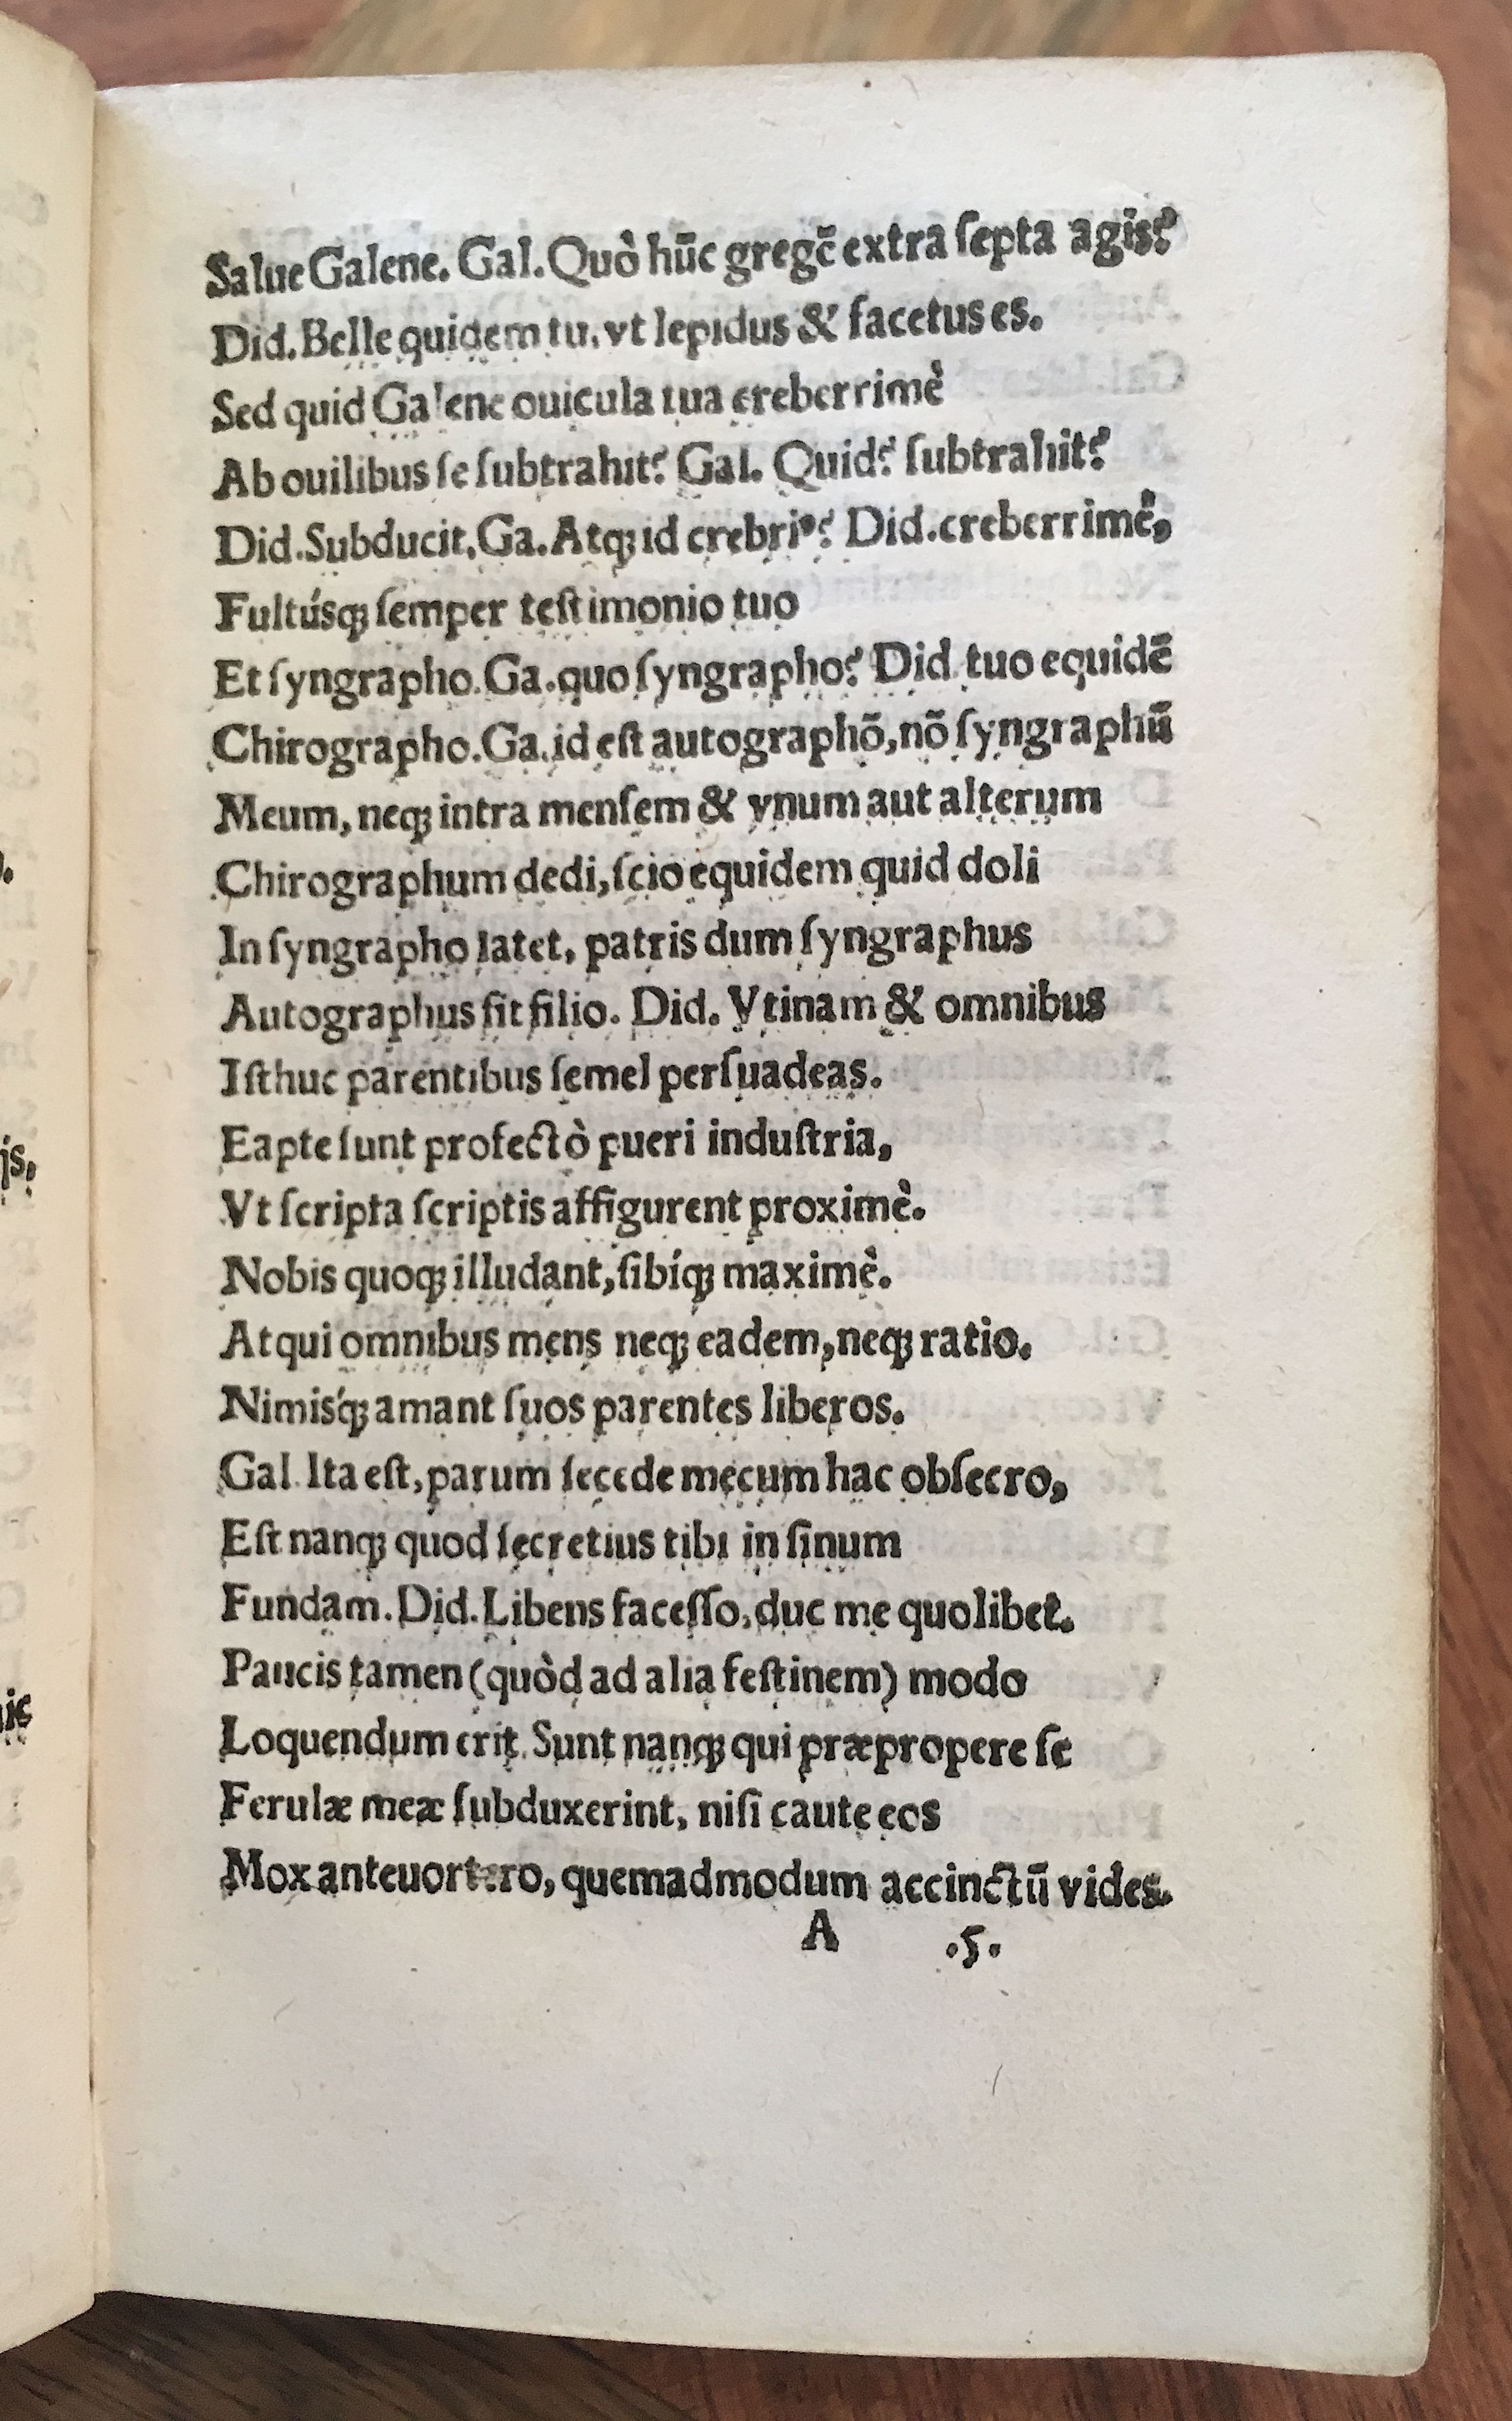 Salue Galene. Gal. Quò hūc gregē extra ſepta agis?
Did. Belle quidem tu, vt lepidus & facetus es.
Sed quid Galene ouicula tua creberrimè
Ab ouilibus ſe ſubtrahit? Gal. Quid? ſubtrahit?
Did. Subducit, Ga. Atq; id crebriꝰ? Did. creberrimè,
Fultúsq; ſemper teſtimonio tuo
Et ſyngrapho. Ga. quo ſyngrapho? Did. tuo equidē
Chirographo. Ga. id eſt autographõ, nõ ſyngraphū
Meum, neq; intra menſem & vnum aut alterum
Chirographum dedi, ſcio equidem quid doli
In ſyngrapho latet, patris dum ſyngraphus
Autographus fit filio. Did. Vtinam & omnibus
Iſthuc parentibus ſemel perſuadeas.
Eapte ſunt profectò pueri induſtria,
Vt ſcripta ſcriptis affigurent proximè.
Nobis quoq; illudant, ſibíq; maximè.
Atqui omnibus mens neq; eadem, neq; ratio.
Nimisq́; amant ſuos parentes liberos.
Gal. Ita eſt, parum ſecede mecum hac obſecro,
Eſt nanq; quod ſecretius tibi in ſinum
Fundam. Did. Libens faceſſo, duc me quolibet.
Paucis tamen (quòd ad alia feſtinem) modo
Loquendum erit. Sunt nanq; qui præpropere ſe
Ferulæ meæ ſubduxerint, niſi caute eos
Mox anteuortero, quemadmodum accinctū vides.
A .5.